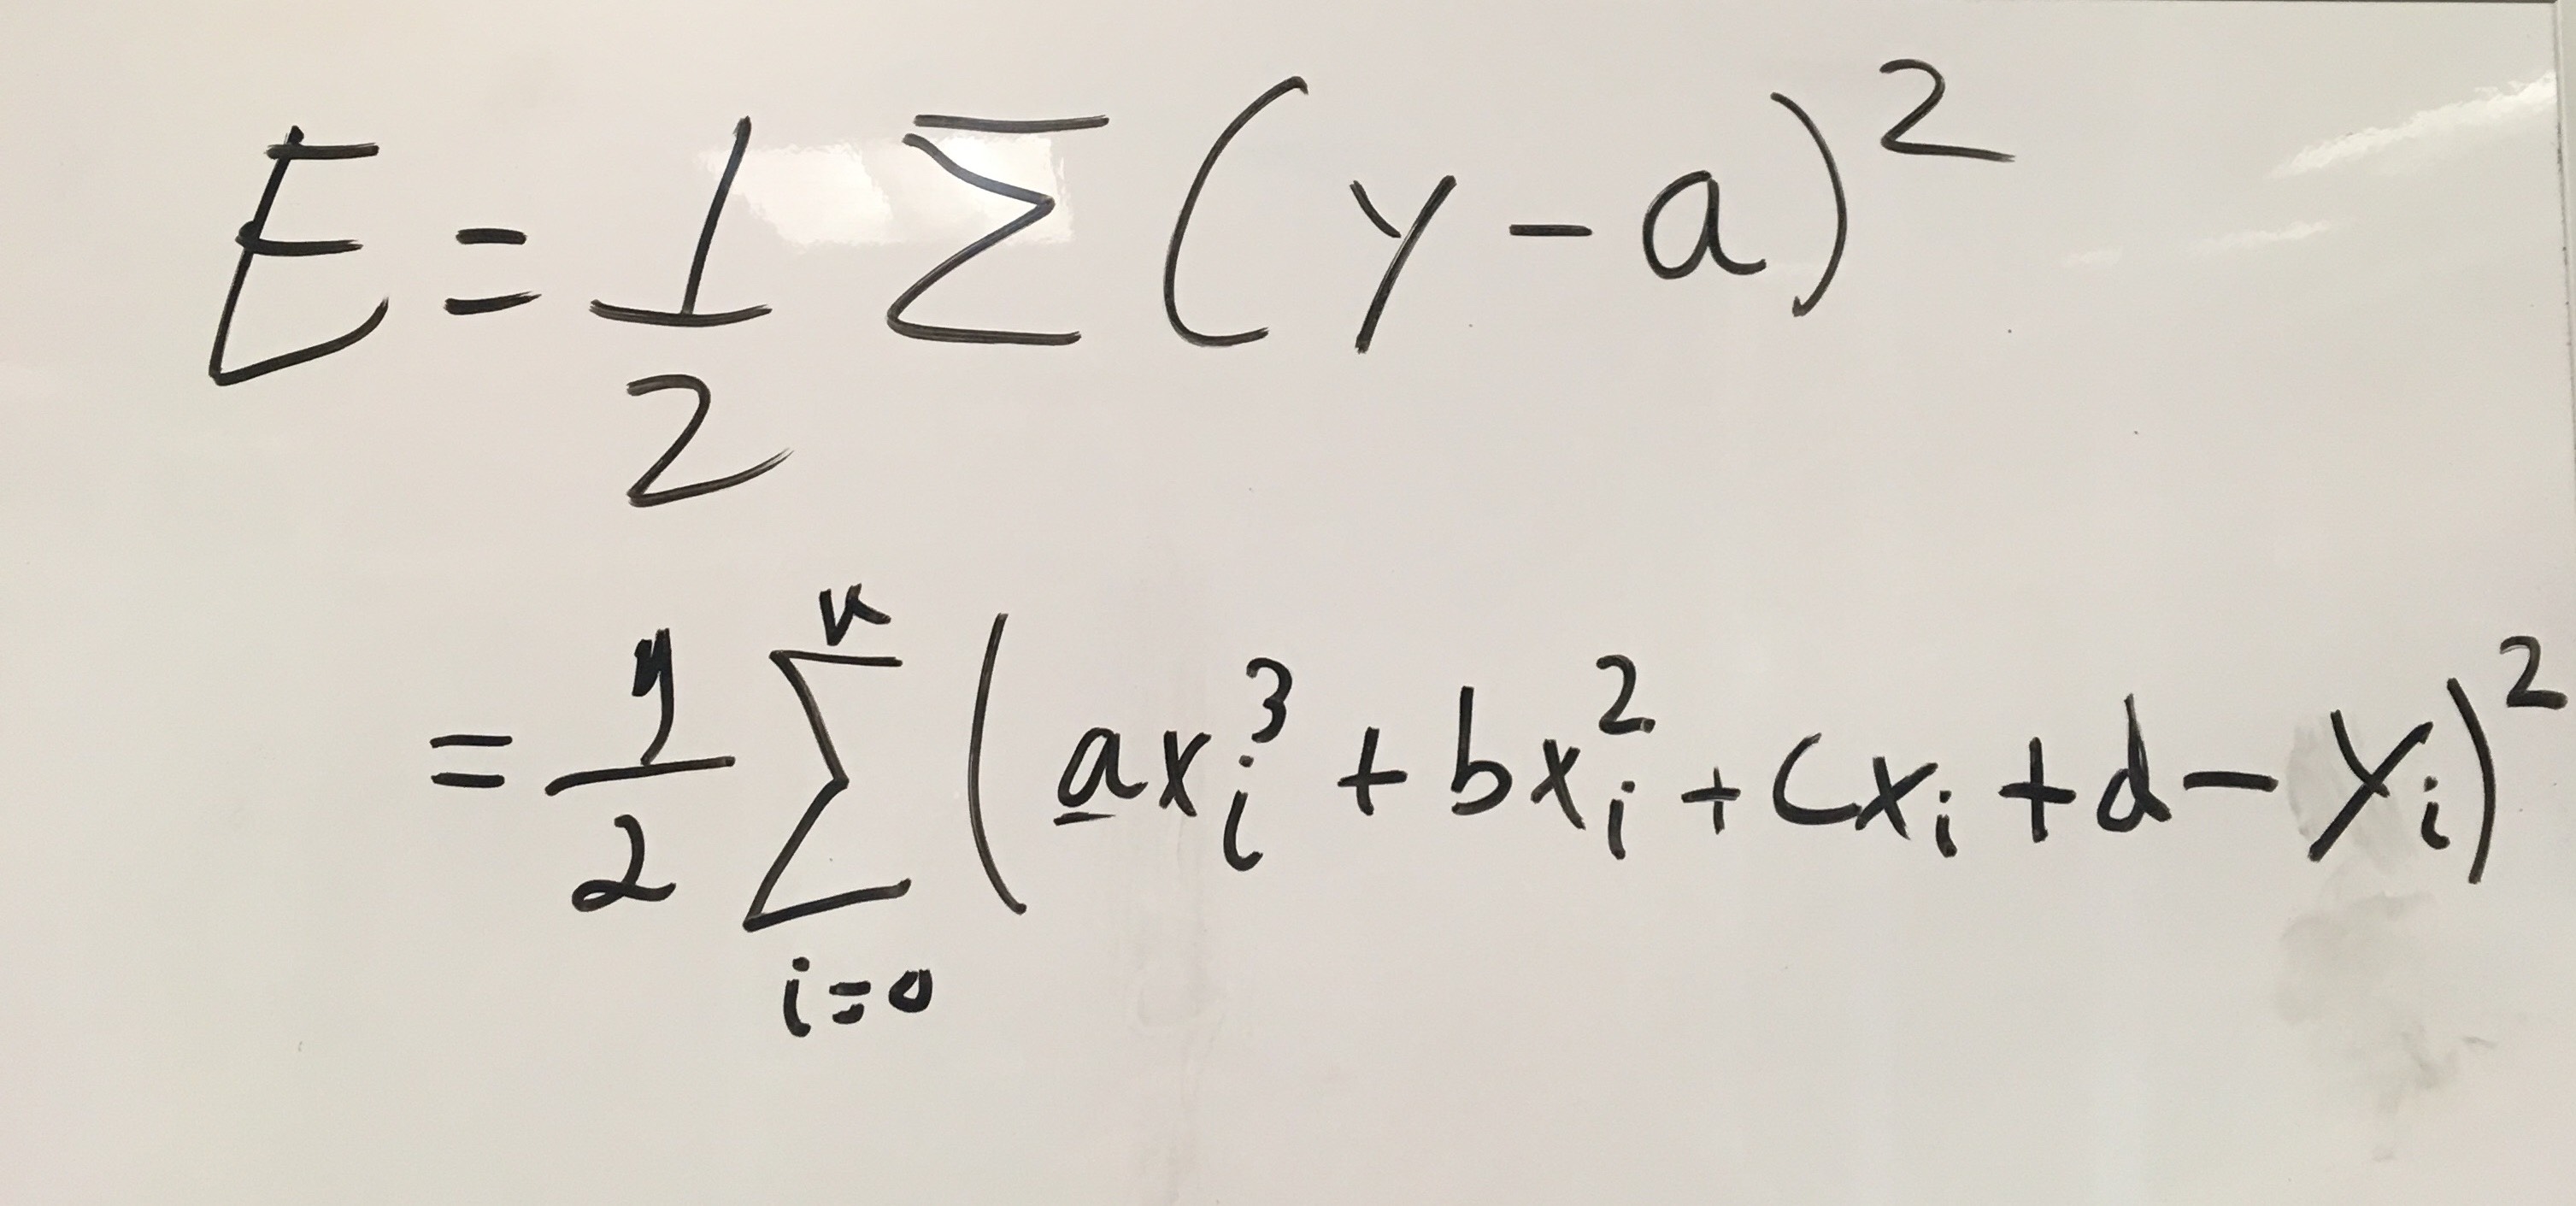 E = 1/2 Σ (y - a)²
= 1/2 Σ i=0 (axᵢ³ + bxᵢ² + cxᵢ + d - yᵢ)²